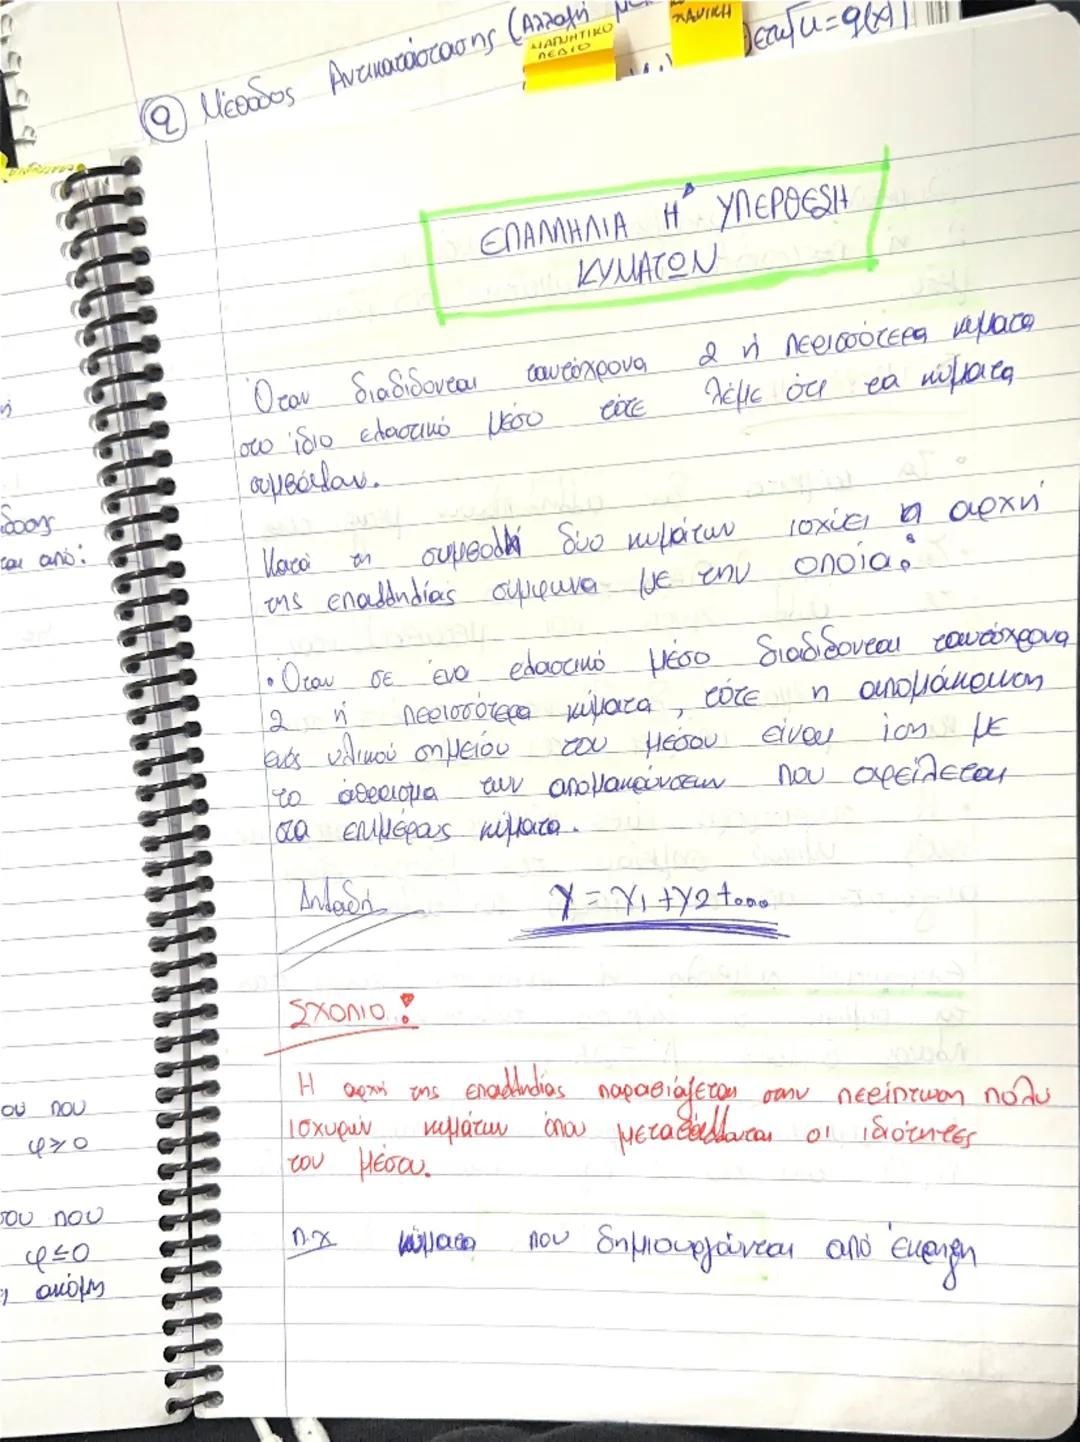 ② Μέθοδος Αντικατάστασης (Αλλαγή
ΜΑΓΝΗΤΙΚΟ
ΠΕΔΙΟ
u=g(x)
ΕΠΑΛΛΗΛΙΑ Η' ΥΠΕΡΘΕΣΗ
ΚΥΜΑΤΩΝ
Όταν διαδίδονται ταυτόχρονα 2 ή περισσότερα κύματα
στο ίδιο ελαστικό μέσο τότε λέμε ότι τα κύματα
συμβάλλουν.
Κατά τη συμβολή δύο κυμάτων ισχύει η αρχή
της επαλληλίας σύμφωνα με την οποία:
• Όταν σε ένα ελαστικό μέσο διαδίδονται ταυτόχρονα
2 ή περισσότερα κύματα, τότε η απομάκρυνση
ενός υλικού σημείου του μέσου είναι ίση με
το άθροισμα των απομακρύνσεων που οφείλεται
στα επιμέρους κύματα.
Δηλαδή y = y1 + y2 + ....
ΣΧΟΛΙΟ:
Η αρχή της επαλληλίας παραβιάζεται στην περίπτωση πολύ
ισχυρών κυμάτων όπου μεταβάλλονται οι ιδιότητες
του μέσου.
π.χ κύματα που δημιουργούνται από έκρηξη
ται από:
ου που
φ≥0
που
φ≤0
ακόμη